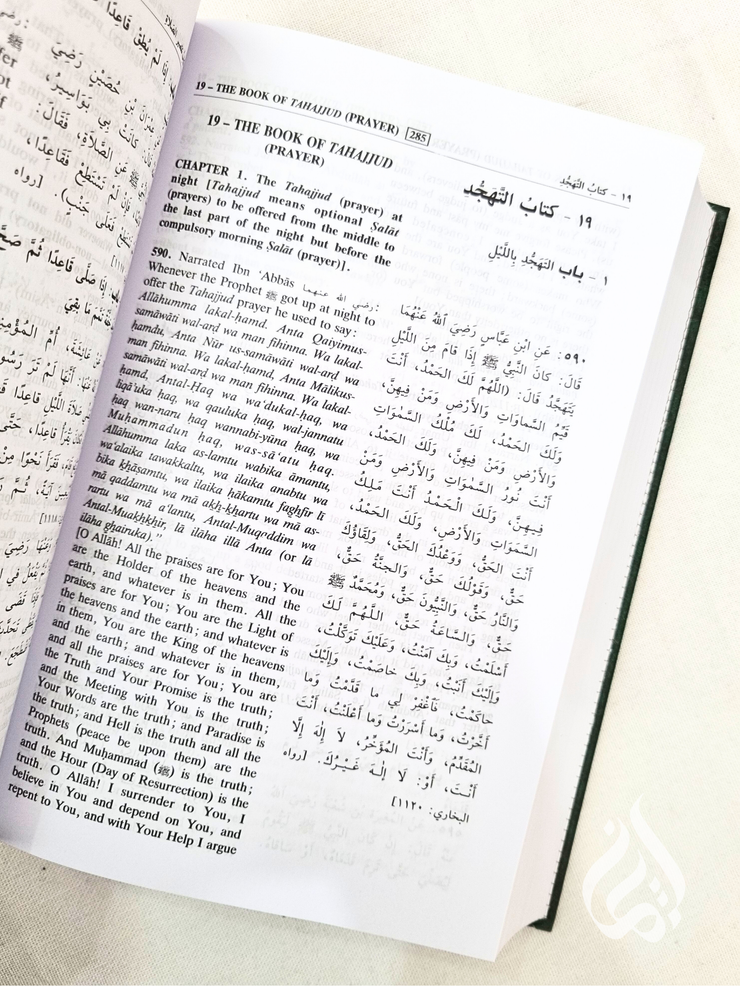 19 – THE BOOK OF TAHAJJUD (PRAYER) 285
١٩ - كتابُ التَّهَجُّدِ
19 – THE BOOK OF TAHAJJUD
(PRAYER)
CHAPTER 1. The Tahajjud (prayer) at
night [Tahajjud means optional Ṣalāt
(prayers) to be offered from the middle to
the last part of the night but before the
compulsory morning Ṣalāt (prayer)].
590. Narrated Ibn ‘Abbās رضي الله عنهما:
Whenever the Prophet ﷺ got up at night to
offer the Tahajjud prayer he used to say:
Allāhumma lakal-ḥamd. Anta Qaiyimus-
samāwāti wal-arḍ wa man fihinna. Wa lakal-
ḥamdu, Anta Nūr us-samāwāti wal-arḍ wa
man fihinna. Wa lakal-ḥamd, Anta Mālikus-
samāwāti wal-arḍ wa man fihinna. Wa lakal-
ḥamd, Antal-Ḥaq wa wa‘dukal-ḥaq, wa
liqā’uka ḥaq, wa qauluka ḥaq, wal-jannatu
ḥaq wan-naru ḥaq wannabi-yūna ḥaq, wa
Muḥammadun ḥaq, was-sā‘atu ḥaq.
Allāhumma laka as-lamtu wabika āmantu,
wa‘alaika tawakkaltu, wa ilaika anabtu wa
bika khāṣamtu, wa ilaika ḥākamtu faghfir lī
mā qaddamtu wa mā akh-khartu wa mā as-
rartu wa mā a‘lantu, Antal-Muqaddim wa
Antal-Muakhkhir, lā ilāha illā Anta (or lā
ilāha ghairuka).”
[O Allāh! All the praises are for You; You
are the Holder of the heavens and the
earth, and whatever is in them. All the
praises are for You; You are the Light of
the heavens and the earth; and whatever is
in them, You are the King of the heavens
and the earth; and whatever is in them,
and all the praises are for You; You are
the Truth and Your Promise is the truth;
and the Meeting with You is the truth;
Your Words are the truth; and Paradise is
the truth; and Hell is the truth and all the
Prophets (peace be upon them) are the
truth. And Muḥammad (ﷺ) is the truth;
and the Hour (Day of Resurrection) is the
truth. O Allāh! I surrender to You, I
believe in You and depend on You, and
repent to You, and with Your Help I argue
١٩ - كتابُ التَّهَجُّدِ
١ - باب التَّهَجُّدِ بِاللَّيْلِ
٥٩٠: عَنِ ابْنِ عَبَّاسٍ رَضِيَ ٱللهُ عَنْهُمَا
قَالَ: كانَ النَّبِيُّ ﷺ إِذَا قامَ مِنَ اللَّيْلِ
يَتَهَجَّدُ قَالَ: (اللَّهُمَّ لَكَ الحَمْدُ، أَنْتَ
قَيِّمُ السَّماوَاتِ وَالأَرْضِ وَمَنْ فِيهِنَّ،
وَلَكَ الحَمْدُ، لَكَ مُلْكُ السَّمٰوَاتِ
وَالأَرْضِ وَمَنْ فِيهِنَّ، وَلَكَ الحَمْدُ،
أَنْتَ نُورُ السَّمٰوَاتِ وَالأَرْضِ وَمَنْ
فِيهِنَّ، وَلَكَ الْحَمْدُ أَنْتَ مَلِكُ
السَّمٰوَاتِ وَالأَرْضِ، وَلَكَ الحَمْدُ،
أَنْتَ الحَقُّ، وَوَعْدُكَ الحَقُّ، وَلِقَاؤُكَ
حَقٌّ، وَقَوْلُكَ حَقٌّ، وَالجَنَّةُ حَقٌّ،
وَالنَّارُ حَقٌّ، وَالنَّبِيُّونَ حَقٌّ، وَمُحَمَّدٌ ﷺ
حَقٌّ، وَالسَّاعَةُ حَقٌّ، اللَّهُمَّ لَكَ
أَسْلَمْتُ، وَبِكَ آمَنْتُ، وَعَلَيْكَ تَوَكَّلْتُ،
وَإِلَيْكَ أَنَبْتُ، وَبِكَ خاصَمْتُ، وَإِلَيْكَ
حاكَمْتُ، فَٱغْفِرْ لِي ما قَدَّمْتُ وَما
أَخَّرْتُ، وَما أَسْرَرْتُ وَما أَعْلَنْتُ، أَنْتَ
المُقَدِّمُ، وَأَنْتَ المُؤَخِّرُ، لاَ إِلٰهَ إِلَّا
أَنْتَ، أَوْ: لَا إِلٰهَ غَيْرُكَ. [رواه
البخاري: ١١٢٠]